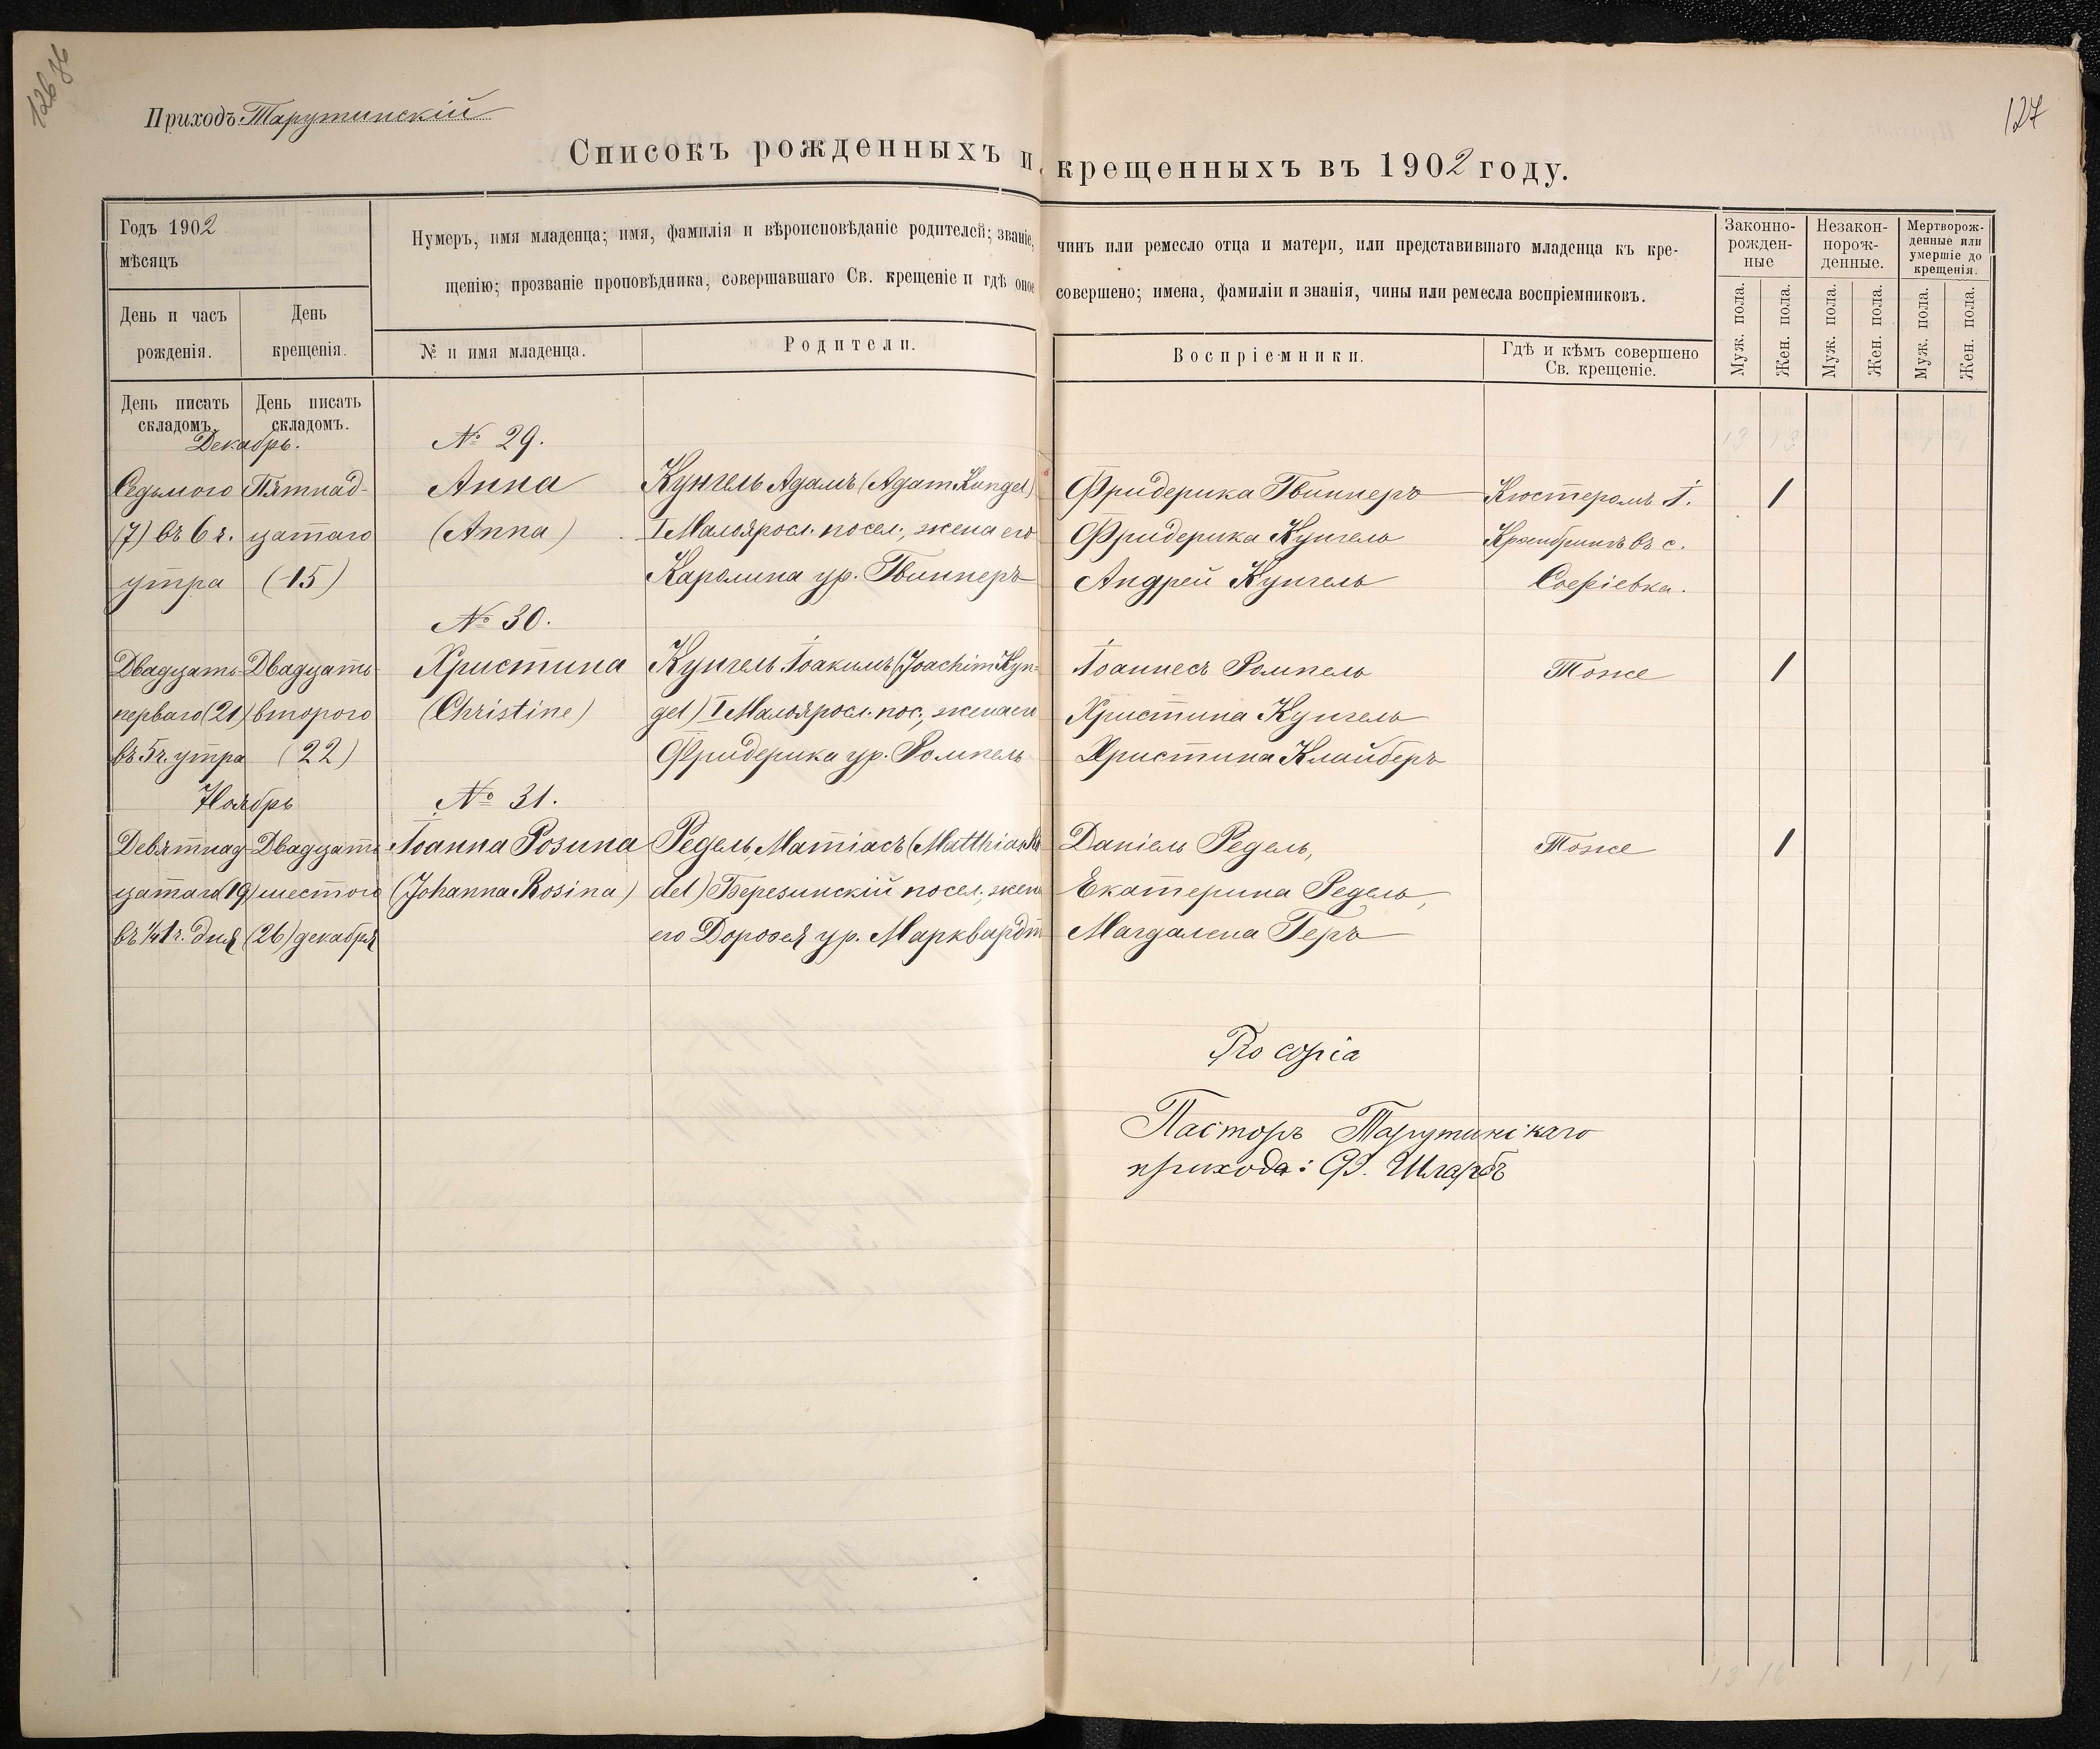 126 об
127
Приходъ: Тарутинскій
Списокъ рожденныхъ и крещенныхъ въ 1902 году.
Годъ 1902
мѣсяцъ
День и часъ
рожденія.
День
крещенія.
Нумеръ, имя младенца; имя, фамилія и вѣроисповѣданіе родителей; званіе, чинъ или ремесло отца и матери, или представившаго младенца къ кре-
щенію; прозваніе проповѣдника, совершавшаго Св. крещеніе и гдѣ оное совершено; имена, фамиліи и знанія, чины или ремесла воспріемниковъ.
№ и имя младенца.
Родители.
Воспріемники.
Гдѣ и кѣмъ совершено
Св. крещеніе.
Законно-
рожден-
ные
Незакон-
норож-
денные.
Мертворож-
денные или
умершіе до
крещенія.
Муж. пола.
Жен. пола.
Муж. пола.
Жен. пола.
Муж. пола.
Жен. пола.
День писать
складомъ.
День писать
складомъ.
Декабрь.
№ 29.
13 13
Седьмого Пятнад- Анна Кунгель Адамъ (Adam Kungel) Фридерика Гвиннеръ Кюстеромъ І. 1
(7) въ 6 ч. цатаго (Anna) I Малояросл. посел., жена его Фридерика Кунгель въ с.
утра (15) Каролина ур. Гвиннеръ Андрей Кунгель Софіевка.
№ 30.
Двадцать- Двадцать- Христина Кунгель Іоакимъ (Joachim Kun- Іоаннесъ Ромпель Тоже 1
перваго (21) второго (Christine) gel) I Малояросл. пос., жена его Христина Кунгель
въ 5 ч. утра (22) Фридерика ур. Ромпель Христина Клайберъ
Ноябрь № 31.
Девятнад- Двадцать- Іоанна Розина Редель, Матіасъ (Matthias Rö- Даніель Редель, Тоже 1
цатаго (19) шестого (Johanna Rosina) del) Березинскій посел., жена Екатерина Редель,
въ 1/4 1 ч. дня (26) декабря его Доротея ур. Марквардт Магдалена Геръ
Pro copia
Пасторъ Тарутинскаго
прихода: Ф. Шларбъ
13 16 1 1